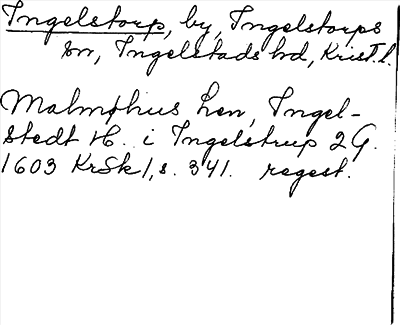 Ingelstorp, by, Ingelstorps
sn, Ingelstads hd, Krist. l.
Malmöhus len, Ingel-
stedt H. i Ingelstrup 2 G.
1603 KrSk 1, s. 341. regest.